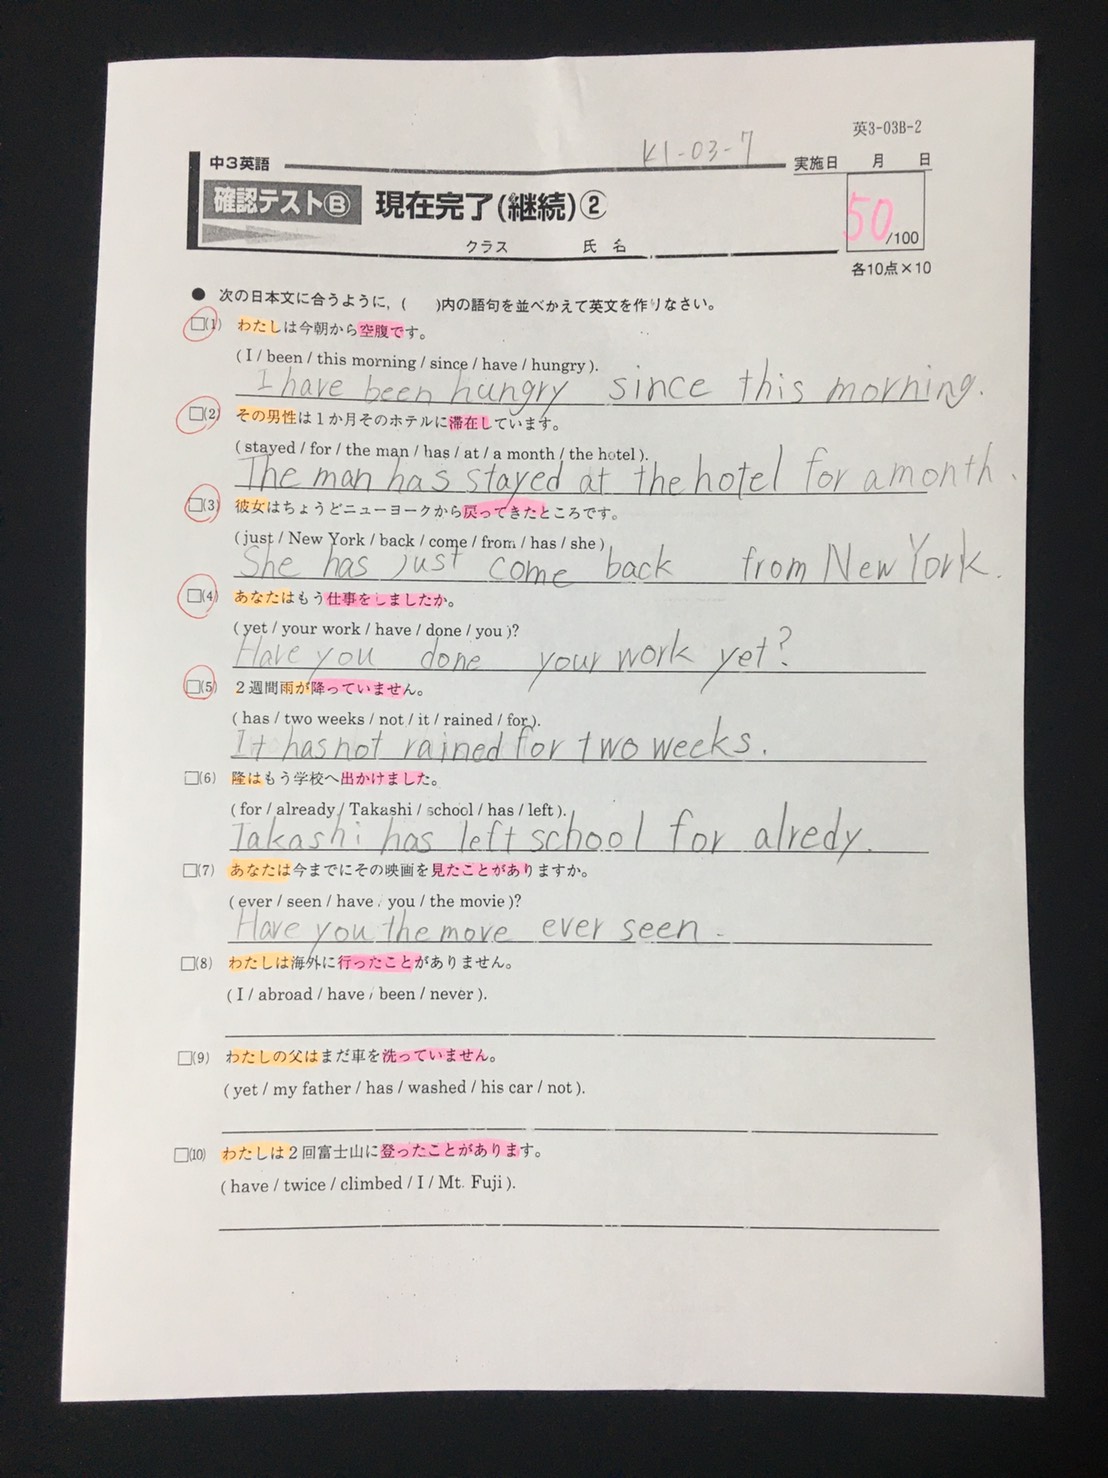 英3-03B-2
K1-03-7
中3英語 実施日 月 日
確認テストⒷ 現在完了(継続)②
50/100
クラス 氏名
各10点×10
● 次の日本文に合うように，( )内の語句を並べかえて英文を作りなさい。
□(1) わたしは今朝から空腹です。
( I / been / this morning / since / have / hungry ).
I have been hungry since this morning.
□(2) その男性は１か月そのホテルに滞在しています。
( stayed / for / the man / has / at / a month / the hotel ).
The man has stayed at the hotel for a month.
□(3) 彼女はちょうどニューヨークから戻ってきたところです。
( just / New York / back / come / from / has / she )
She has just come back from New York.
□(4) あなたはもう仕事をしましたか。
( yet / your work / have / done / you )?
Have you done your work yet?
□(5) ２週間雨が降っていません。
( has / two weeks / not / it / rained / for ).
It has not rained for two weeks.
□(6) 隆はもう学校へ出かけました。
( for / already / Takashi / school / has / left ).
Takashi has left school for alredy.
□(7) あなたは今までにその映画を見たことがありますか。
( ever / seen / have / you / the movie )?
Have you the move ever seen.
□(8) わたしは海外に行ったことがありません。
( I / abroad / have / been / never ).
□(9) わたしの父はまだ車を洗っていません。
( yet / my father / has / washed / his car / not ).
□(10) わたしは２回富士山に登ったことがあります。
( have / twice / climbed / I / Mt. Fuji ).